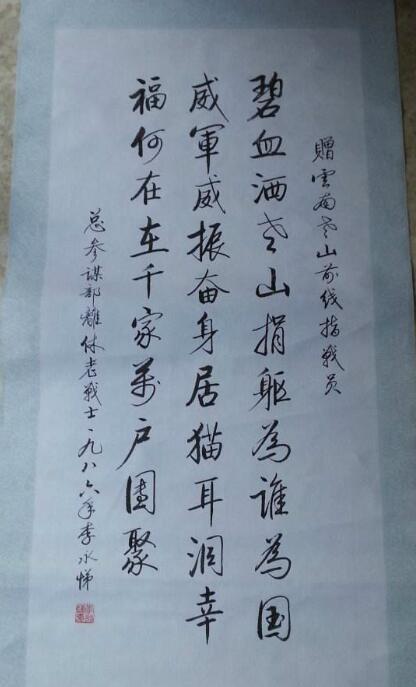 贈雲南老山前线指战员
碧血洒老山捐躯為谁為国
威軍威振奋身居猫耳洞幸
福何在在千家萬户團聚
总参谋部離休老战士一九八六年李水悌